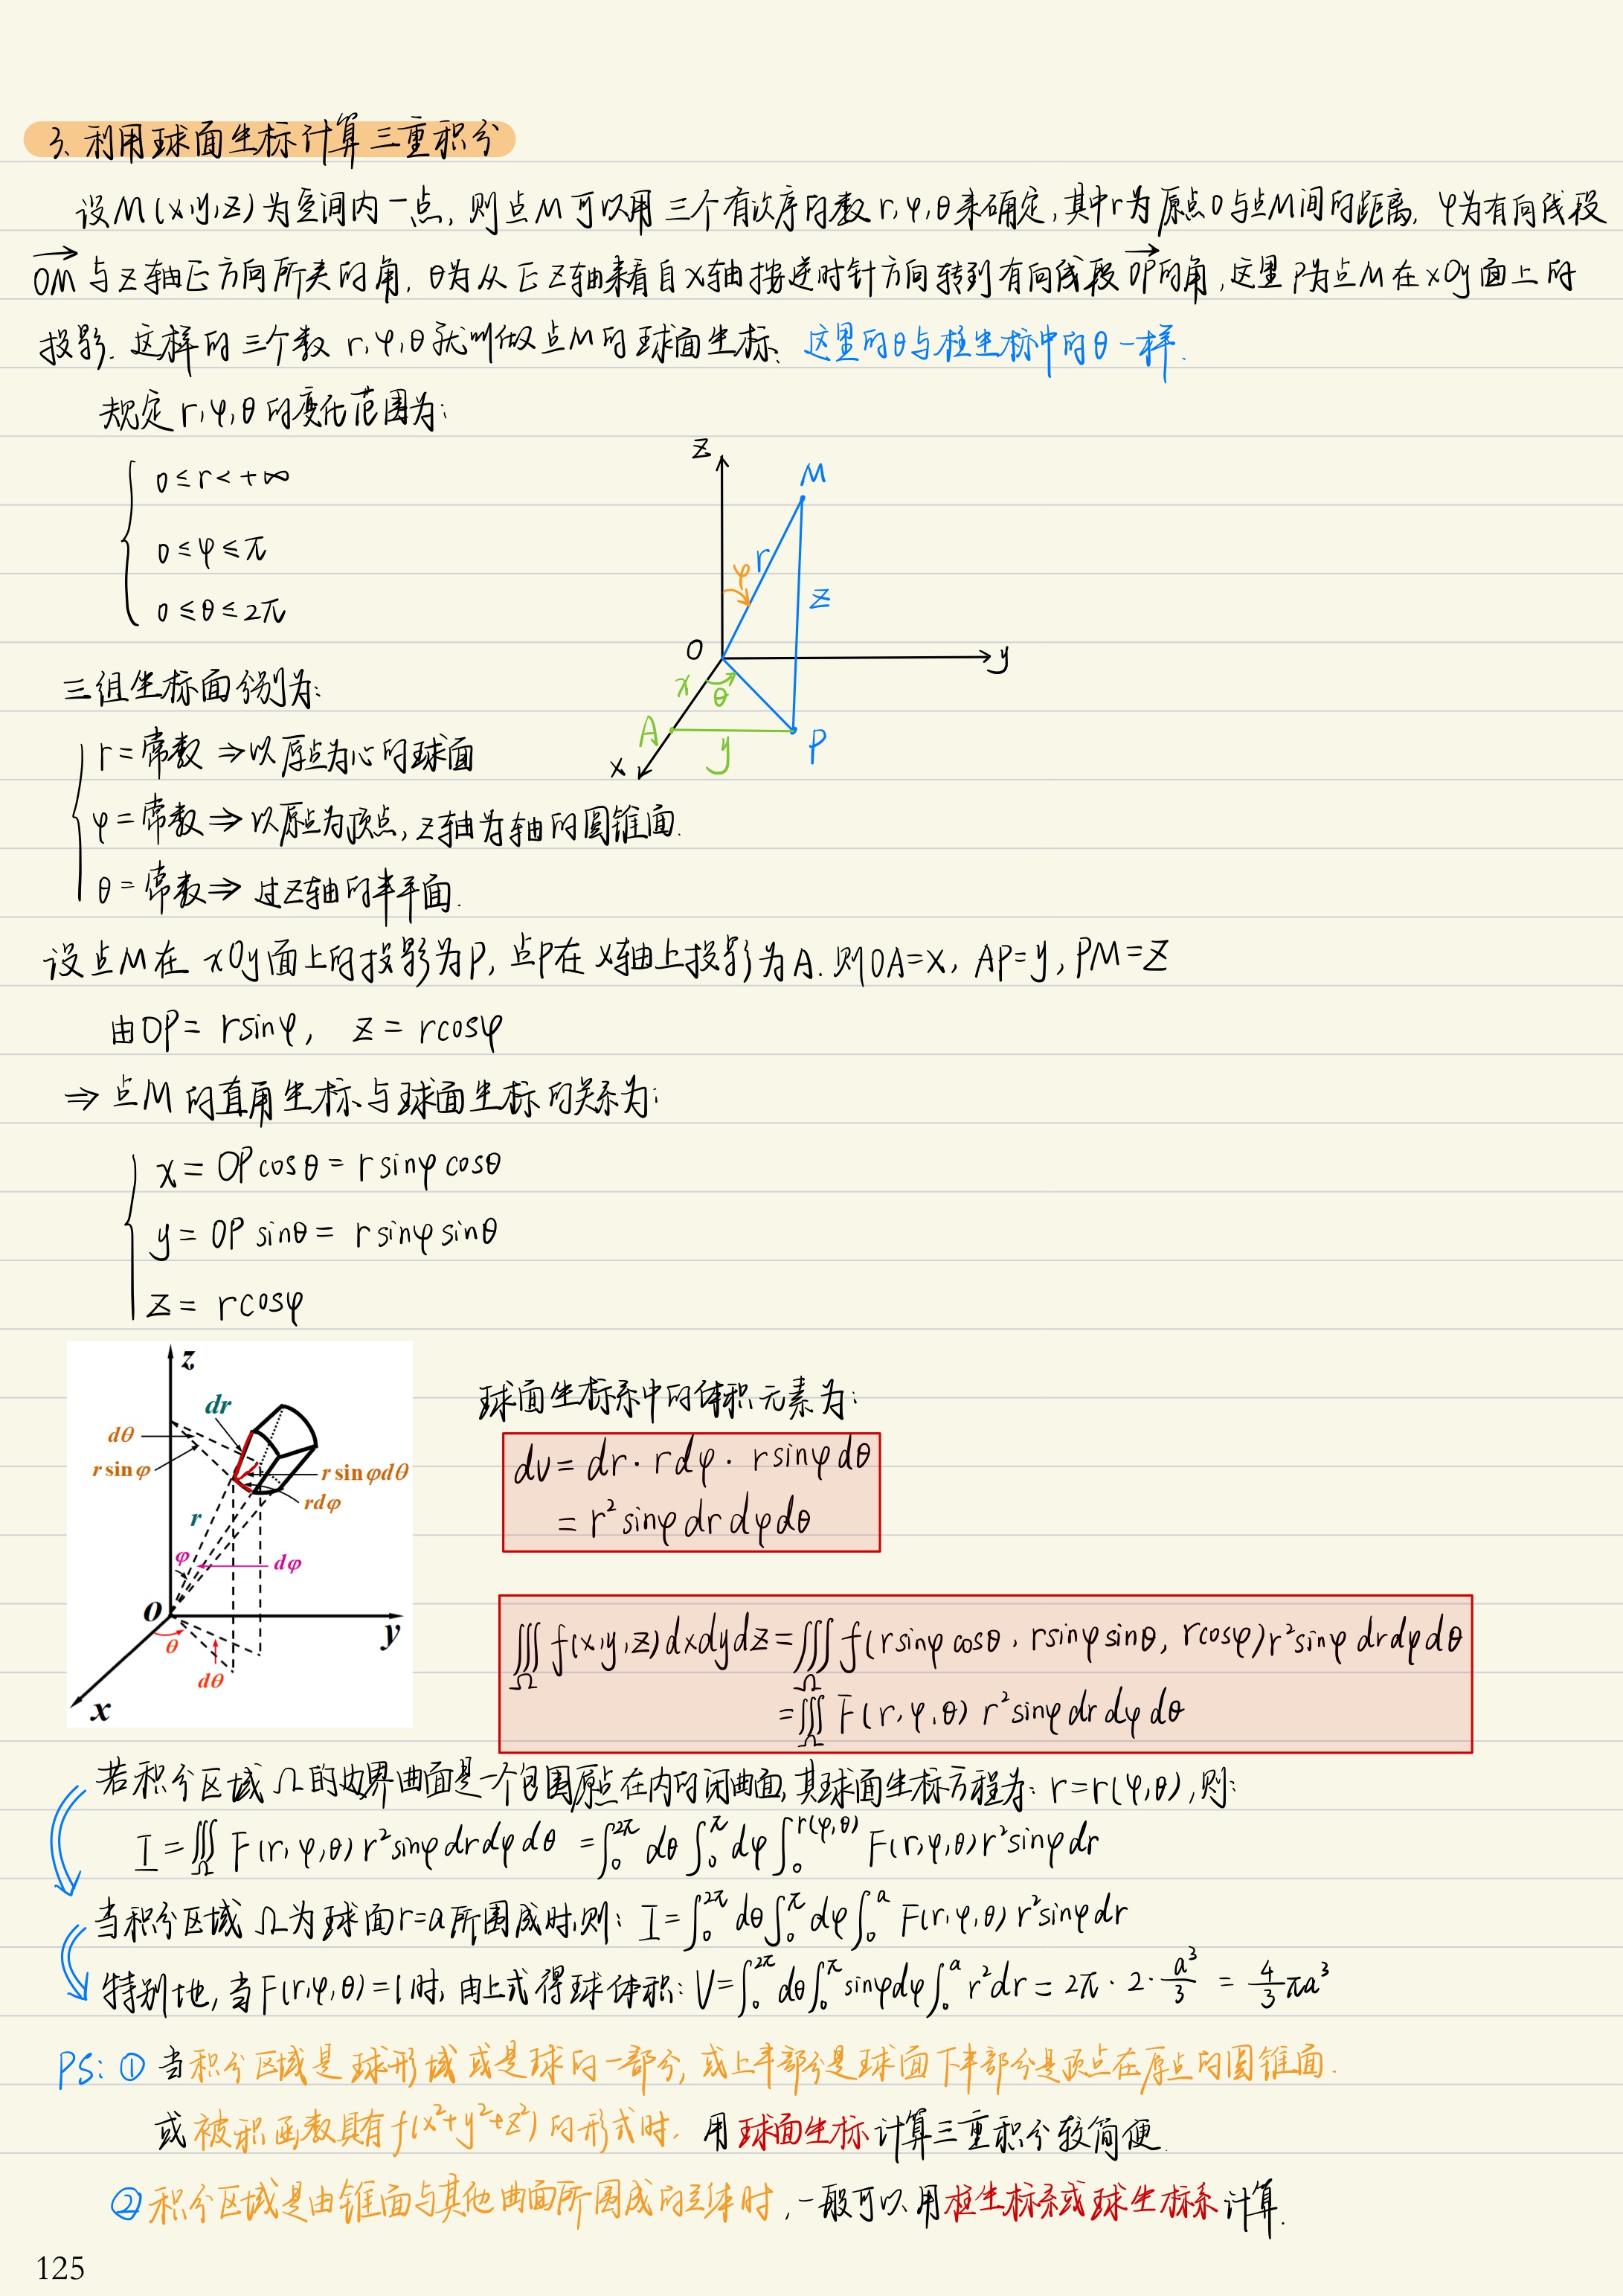 3、利用球面坐标计算三重积分
设M(x,y,z)为空间内一点, 则点M可以用三个有次序的数r,φ,θ来确定,其中r为原点O与点M间的距离, φ为有向线段
OM与z轴正方向所夹的角, θ为从正z轴来看自x轴按逆时针方向转到有向线段OP的角,这里P为点M在xOy面上的
投影. 这样的三个数 r,φ,θ就叫做点M的球面坐标、这里的θ与柱坐标中的θ一样.
规定r,φ,θ的变化范围为:
0≤r<+∞
0≤φ≤π
0≤θ≤2π
z
M
φ
r
z
O
y
x
θ
A
y
P
x
三组坐标面分别为:
r=常数 ⇒以原点为心的球面
φ=常数⇒以原点为顶点,z轴为轴的圆锥面.
θ=常数⇒ 过z轴的半平面.
设点M在xOy面上的投影为P, 点P在x轴上投影为A. 则OA=x, AP=y, PM=z
由OP= rsinφ, z= rcosφ
⇒ 点M的直角坐标与球面坐标的关系为:
x= OPcosθ= rsinφcosθ
y= OP sinθ= rsinφsinθ
z= rcosφ
z
dr
dθ
r sin φ
r sin φdθ
rdφ
r
φ
dφ
O
y
θ
dθ
x
球面坐标系中的体积元素为:
dv= dr·rdφ·rsinφdθ
= r²sinφdrdφdθ
∭_Ω f(x,y,z)dxdydz=∭_Ω f(rsinφcosθ, rsinφsinθ, rcosφ)r²sinφdrdφdθ
=∭_Ω F(r,φ,θ) r²sinφdrdφdθ
若积分区域Ω的边界曲面是一个包围原点在内的闭曲面,其球面坐标方程为: r=r(φ,θ),则:
I=∭_Ω F(r,φ,θ)r²sinφdrdφdθ =∫₀^{2π}dθ∫₀^π dφ∫₀^{r(φ,θ)}F(r,φ,θ)r²sinφdr
当积分区域Ω为球面r=a所围成时,则: I=∫₀^{2π}dθ∫₀^π dφ∫₀^a F(r,φ,θ)r²sinφdr
特别地,当F(r,φ,θ)=1时, 由上式得球体积: V=∫₀^{2π}dθ∫₀^π sinφdφ∫₀^a r²dr= 2π·2·a³/3 = 4/3 πa³
PS: ① 当积分区域是球形域或是球的一部分, 或上半部分是球面下半部分是顶点在原点的圆锥面.
或被积函数具有f(x²+y²+z²)的形式时, 用球面坐标计算三重积分较简便.
② 积分区域是由锥面与其他曲面所围成的立体时,一般可以用柱坐标系或球坐标系计算.
125